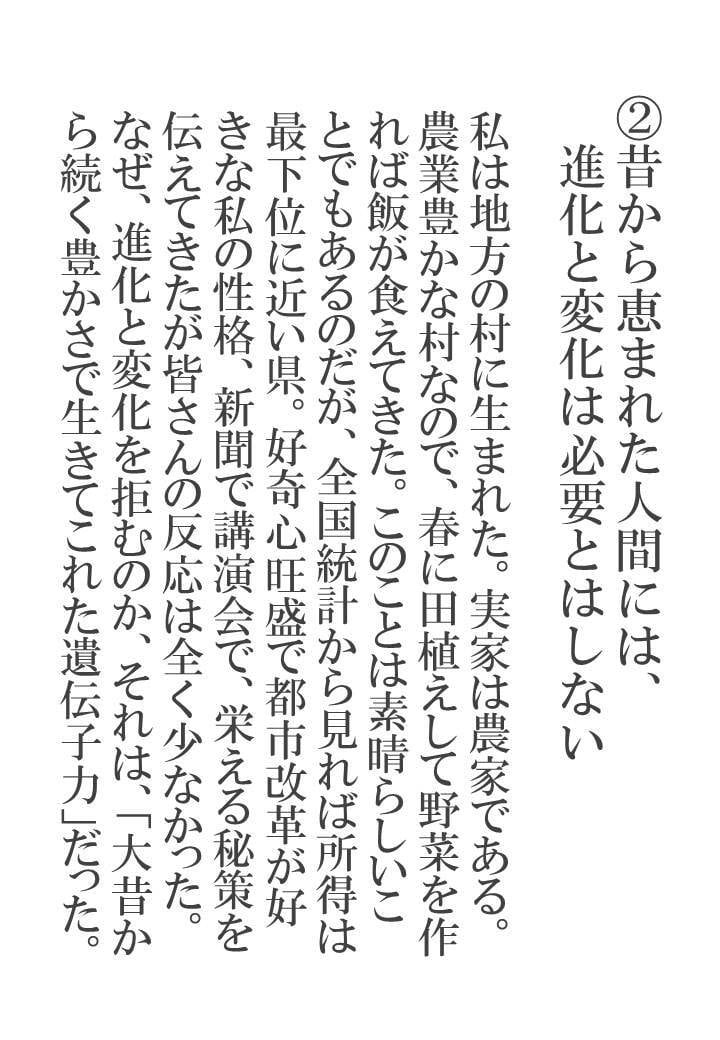 ②昔から恵まれた人間には、
進化と変化は必要とはしない
私は地方の村に生まれた。実家は農家である。
農業豊かな村なので、春に田植えして野菜を作
れば飯が食えてきた。このことは素晴らしいこ
とでもあるのだが、全国統計から見れば所得は
最下位に近い県。好奇心旺盛で都市改革が好
きな私の性格、新聞で講演会で、栄える秘策を
伝えてきたが皆さんの反応は全く少なかった。
なぜ、進化と変化を拒むのか、それは、「大昔か
ら続く豊かさで生きてこれた遺伝子力」だった。